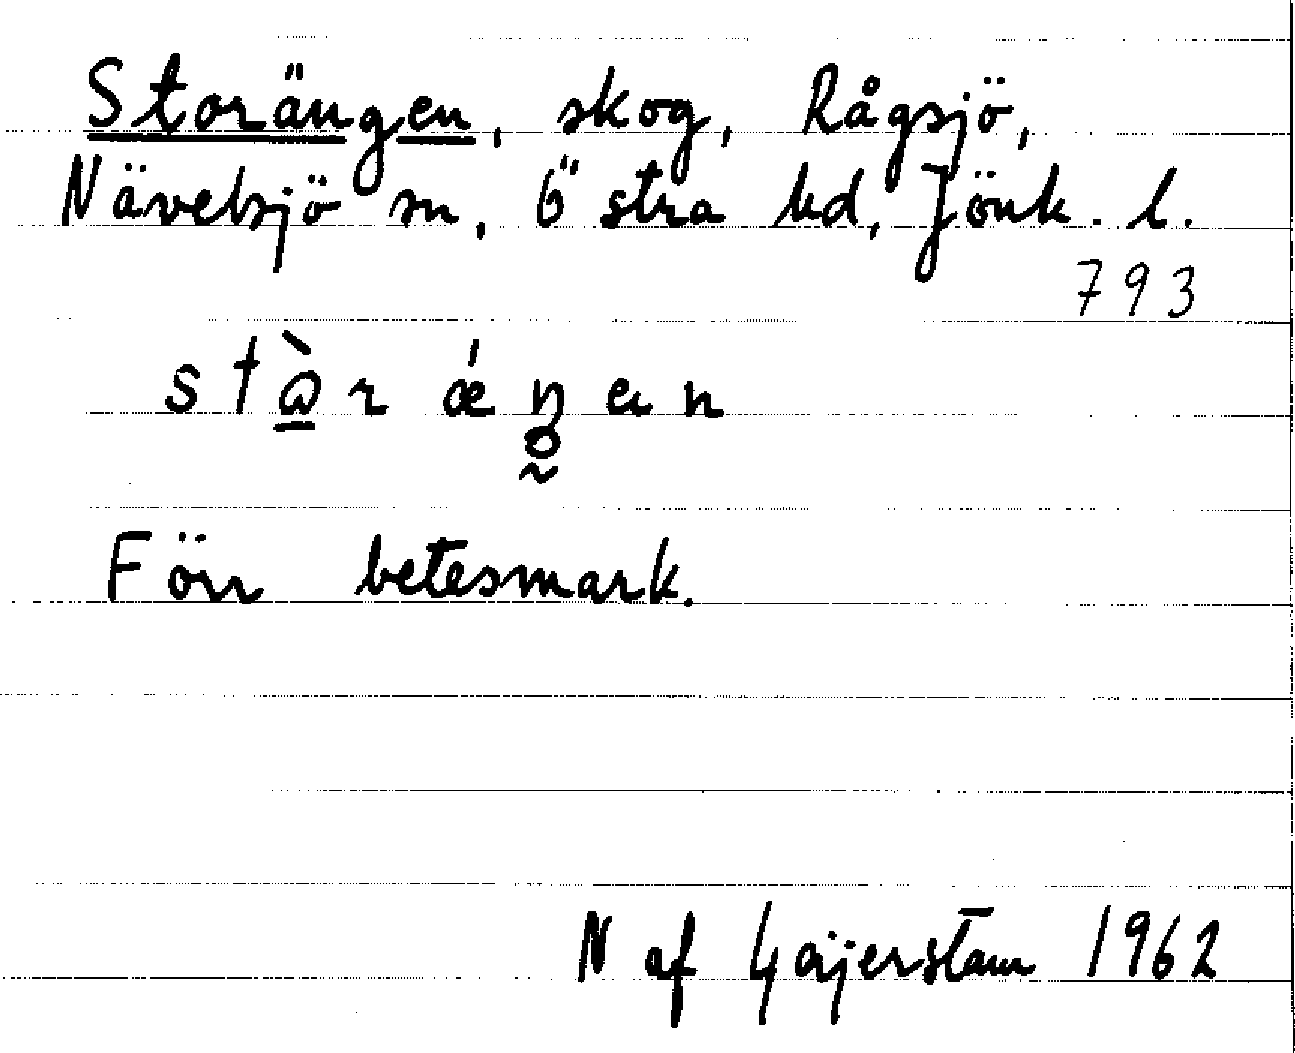 Storängen, skog, Rågsjö,
Nävelsjö sn, Östra hd, Jönk. l.
793
Förr betesmark.
N af Geijerstam 1962